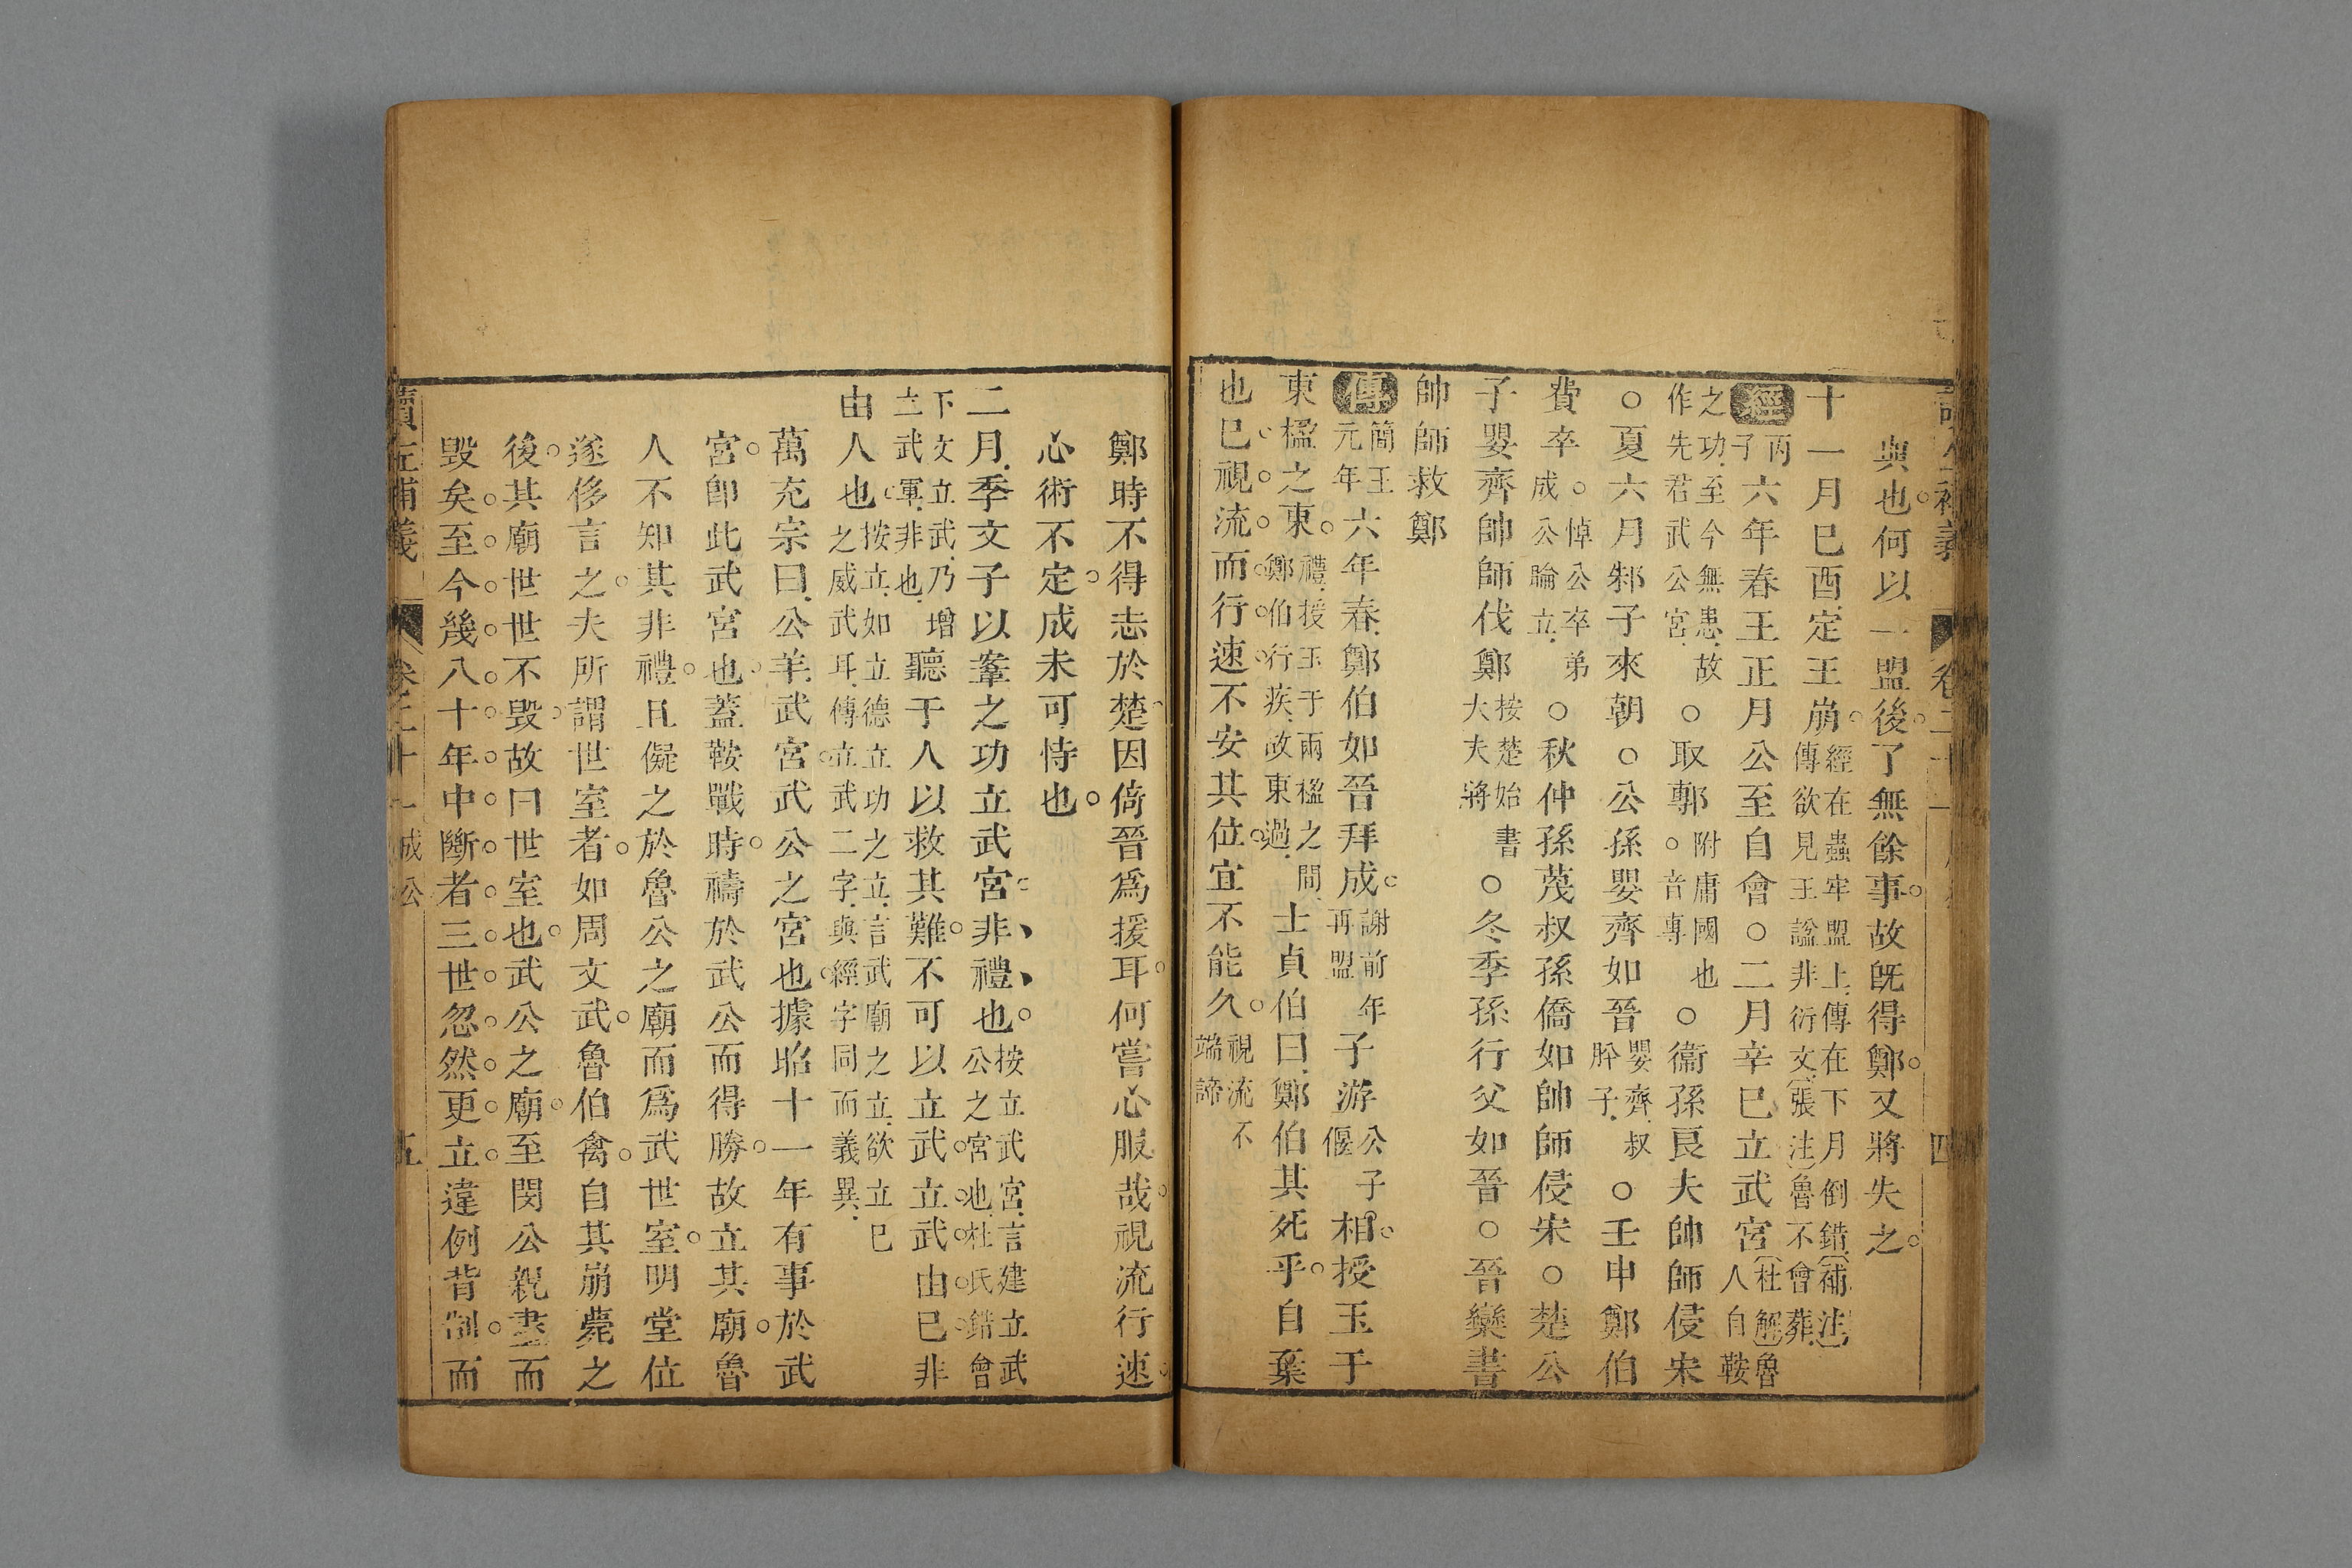 與也何以一盟後了無餘事故旣得鄭又將失之
十一月巳酉定王崩經在蟲牢盟上傳在下月倒錯〔補注〕傳欲見王諡非衍文〔張注〕魯不會葬
經丙子六年春王正月公至自會○二月辛巳立武宮〔杜解〕魯人自鞍
之功至今無患故作先君武公宮○取鄟附庸國也○音專○衞孫良夫帥師侵宋
○夏六月邾子來朝○公孫嬰齊如晉嬰齊叔肸子○壬申鄭伯
費卒○悼公卒弟成公睔立○秋仲孫蔑叔孫僑如帥師侵宋○楚公
子嬰齊帥師伐鄭按楚始書大夫將○冬季孫行父如晉○晉欒書
帥師救鄭
傳簡王元年六年春鄭伯如晉拜成謝前年再盟子游公子偃相授玉于
東楹之東禮授玉于兩楹之間鄭伯行疾故東過士貞伯曰鄭伯其死乎自棄
也巳視流而行速不安其位宜不能久視流不端諦
鄭時不得志於楚因倚晉爲援耳何嘗心服哉視流行速
心術不定成未可恃也
二月季文子以鞌之功立武宮非禮也按立武宮言建立武公之宮也杜氏錯會
下文立武乃增立武軍非也聽于人以救其難不可以立武立武由巳非
由人也按立如立德立功之立言武廟之立欲立巳之威武耳傳立武二字與經字同而義異
萬充宗曰公羊武宮武公之宮也據昭十一年有事於武
宮卽此武宮也蓋鞍戰時禱於武公而得勝故立其廟魯
人不知其非禮且儗之於魯公之廟而爲武世室明堂位
遂侈言之夫所謂世室者如周文武魯伯禽自其崩薨之
後其廟世世不毁故曰世室也武公之廟至閔公親盡而
毁矣至今幾八十年中斷者三世忽然更立違例背制而
讀左補義 卷二十一 成公 五